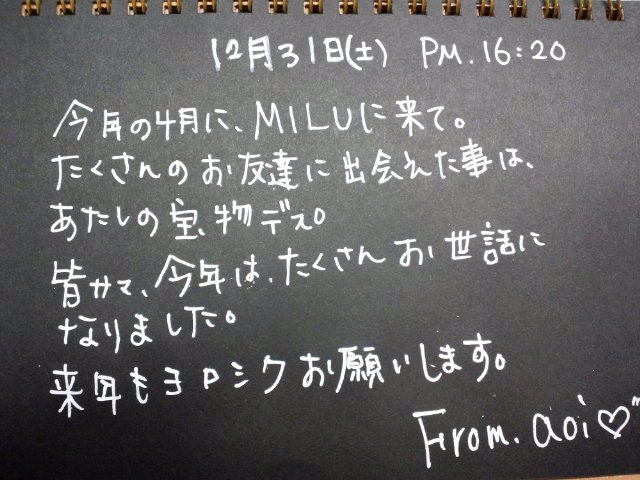 12月31日(土) PM.16:20
今年の4月に、MILUに来て。
たくさんのお友達に出会えた事は、
あたしの宝物デス。
皆サマ、今年は、たくさんお世話に
なりました。
来年もヨロシクお願いします。
From.aoi♡"